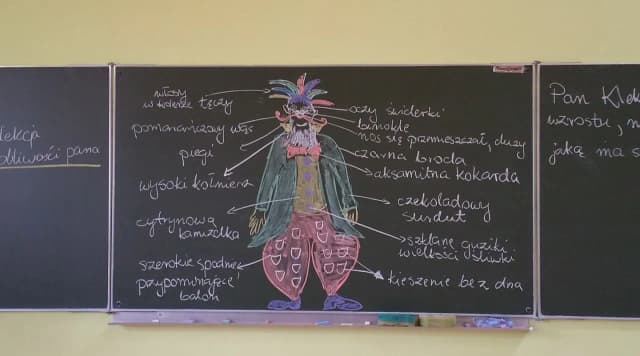 lekcja
dliwości pana
włosy
w kolorze tęczy
pomarańczowy wąs
piegi
wysoki kołnierz
cytrynowa
kamizelka
szerokie spodnie
przypominające
balon
oczy świderki
binokle
nos się przemieszczał, duży
czarna broda
aksamitna kokarda
czekoladowy
surdut
szklane guziki
wielkości śliwki
kieszenie bez dna
Pan Klek
wzrostu, n
jaką ma s